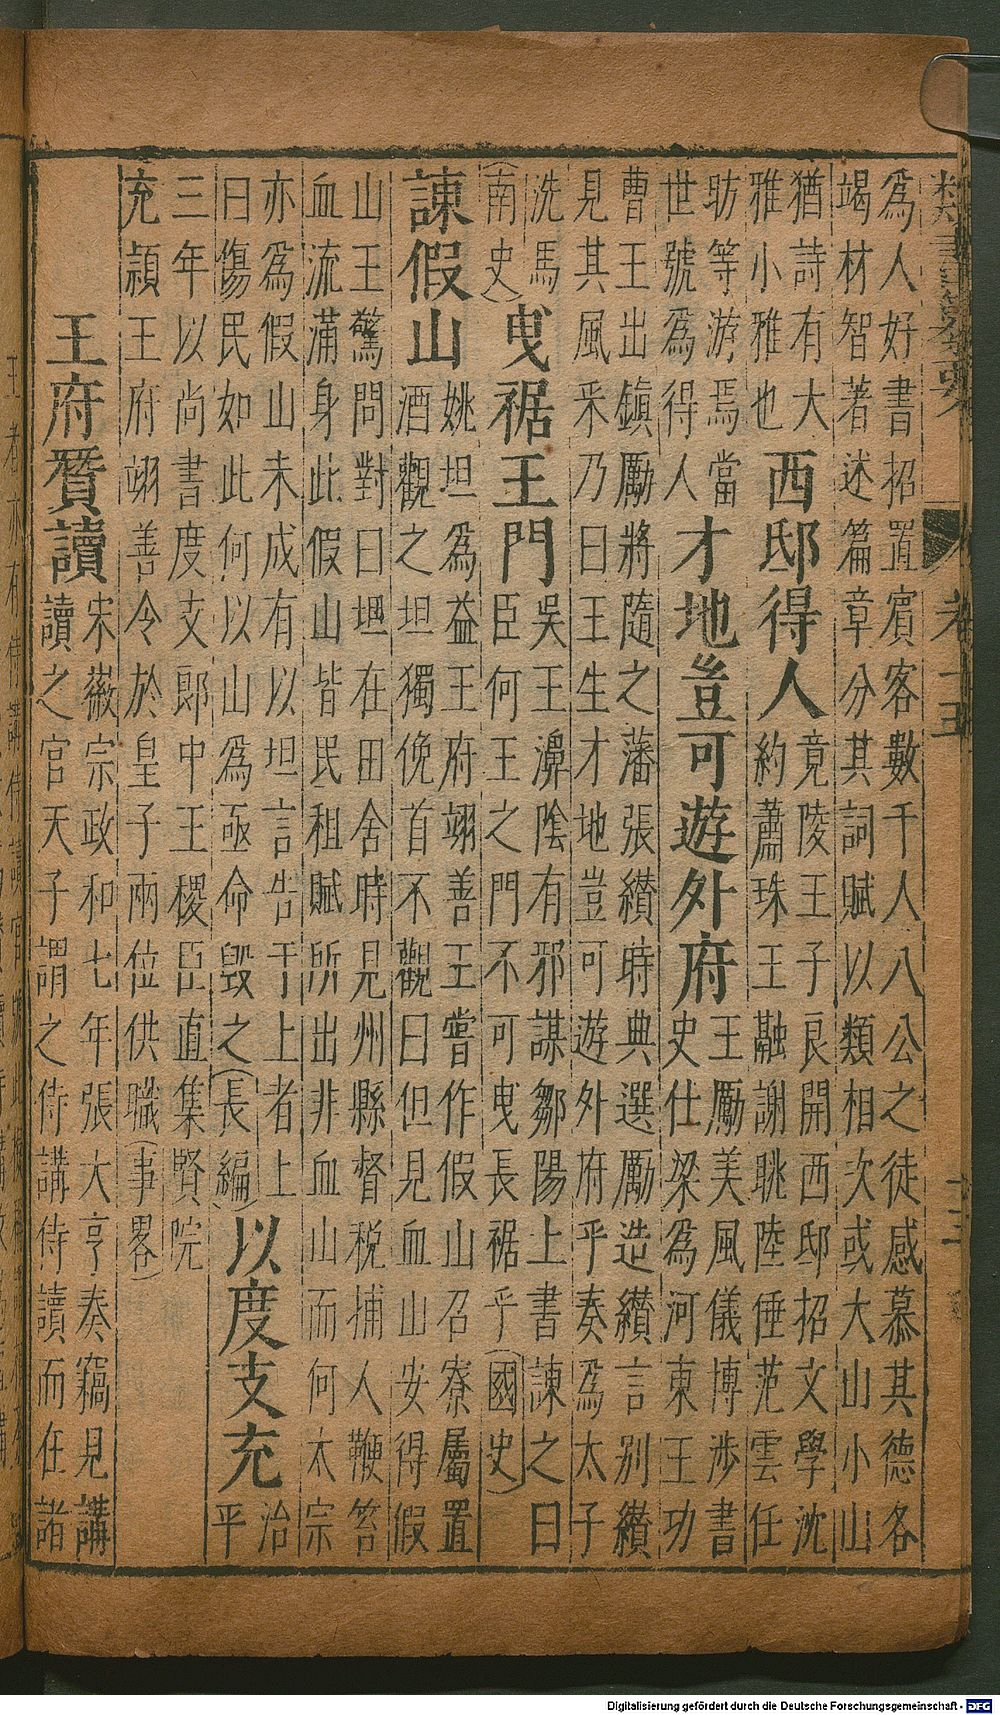 為人好書招置賓客數千人八公之徒感慕其德各
竭材智著述篇章分其詞賦以類相次或大山小山
猶詩有大
雅小雅也
西邸得人
竟陵王子良開西邸招文學沈
約蕭珠王融謝眺陸倕范雲任
昉等游焉當
世號為得人
才地豈可遊外府
王勵美風儀博涉書
史仕梁為河東王功
曹王出鎮勵將隨之藩張纘時典選勵造纘言別纘
見其風采乃曰王生才地豈可遊外府乎奏為太子
洗馬
(南史)
曳裾王門
吳王濞陰有邪謀鄒陽上書諫之曰
臣何王之門不可曳長裾乎(國史)
諫假山
姚坦為益王府翊善王嘗作假山召寮屬置
酒觀之坦獨俛首不觀曰但見血山安得假
山王驚問對曰坦在田舍時見州縣督稅捕人鞭笞
血流滿身此假山皆民租賦所出非血山而何太宗
亦為假山未成有以坦言告于上者上
曰傷民如此何以山為亟命毀之(長編)
以度支充
治
平
三年以尚書度支郎中王稷臣直集賢院
充頴王府翊善令於皇子兩位供職(事畧)
王府贊讀
宋徽宗政和七年張大亨奏竊見講
讀之官天子謂之侍講侍讀而在諸
卷一五
Digitalisierung gefördert durch die Deutsche Forschungsgemeinschaft - DFG